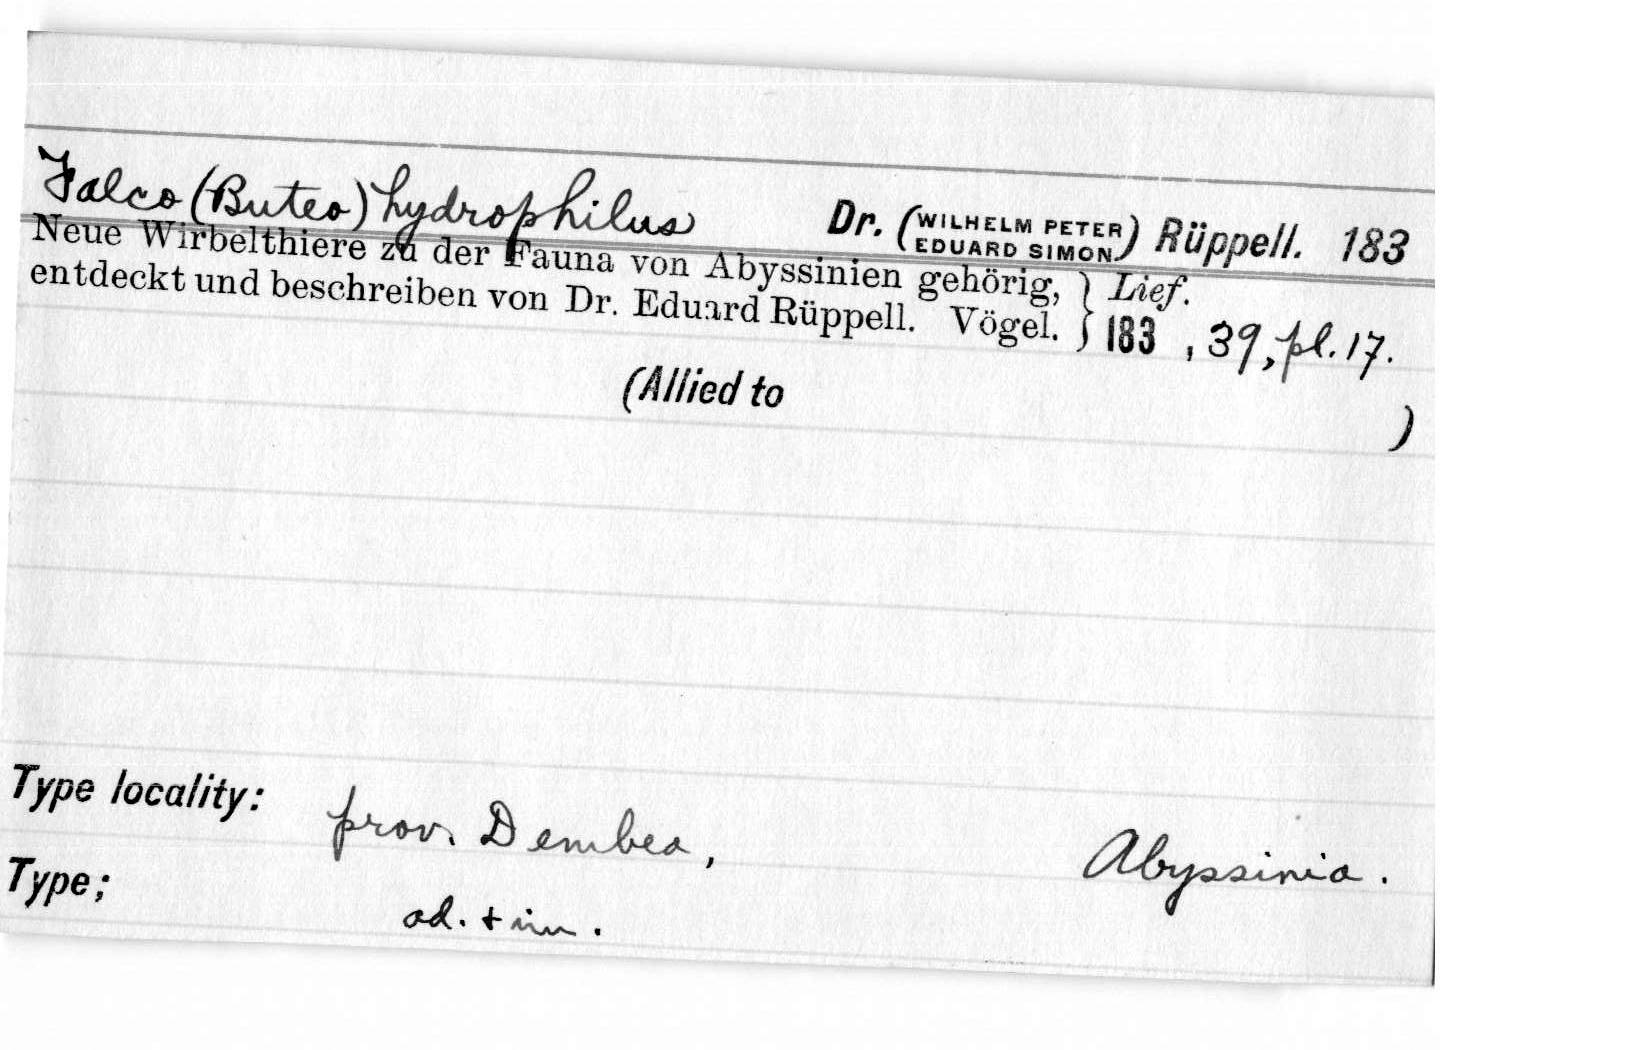 Falco (Buteo) hydrophilus Dr. (WILHELM PETER EDUARD SIMON) Rüppell. 183
Neue Wirbelthiere zu der Fauna von Abyssinien gehörig, } Lief.
entdeckt und beschreiben von Dr. Eduard Rüppell. Vögel. } 183 , 39, pl. 17.
(Allied to )
Type locality: prov. Dembea, Abyssinia.
Type; ad. + im.